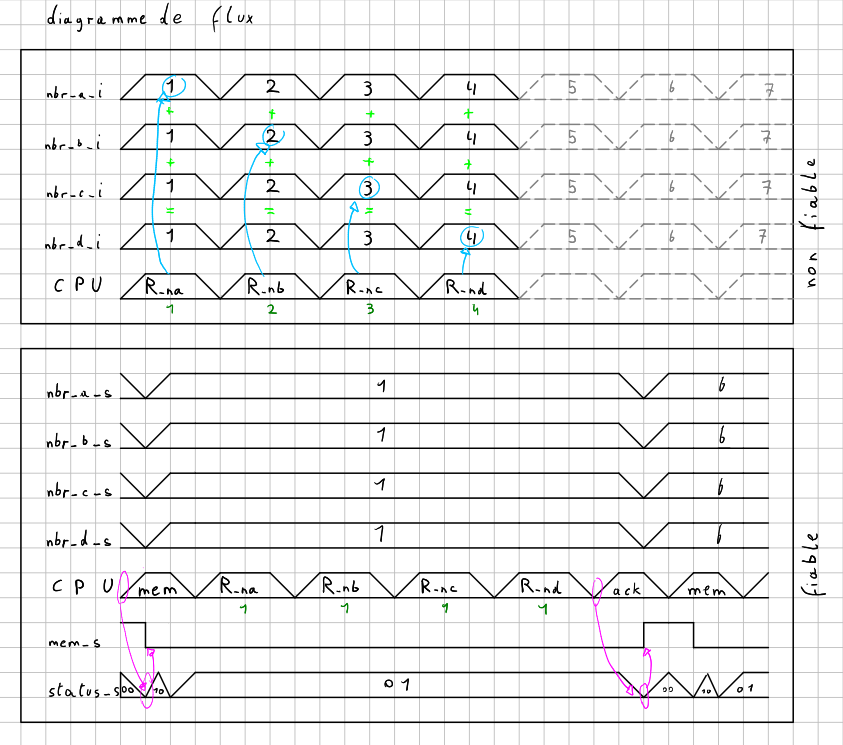 diagramme de flux
nbr_a_i 1 2 3 4 5 6 7
+ + + +
nbr_b_i 1 2 3 4 5 6 7
+ + + +
nbr_c_i 1 2 3 4 5 6 7
= = = =
nbr_d_i 1 2 3 4 5 6 7
CPU R_na R_nb R_nc R_nd
1 2 3 4
non fiable
nbr_a_s 1 6
nbr_b_s 1 6
nbr_c_s 1 6
nbr_d_s 1 6
CPU mem R_na R_nb R_nc R_nd ack mem
1 1 1 1
mem_s
status_s 00 10 01 00 10 01
fiable